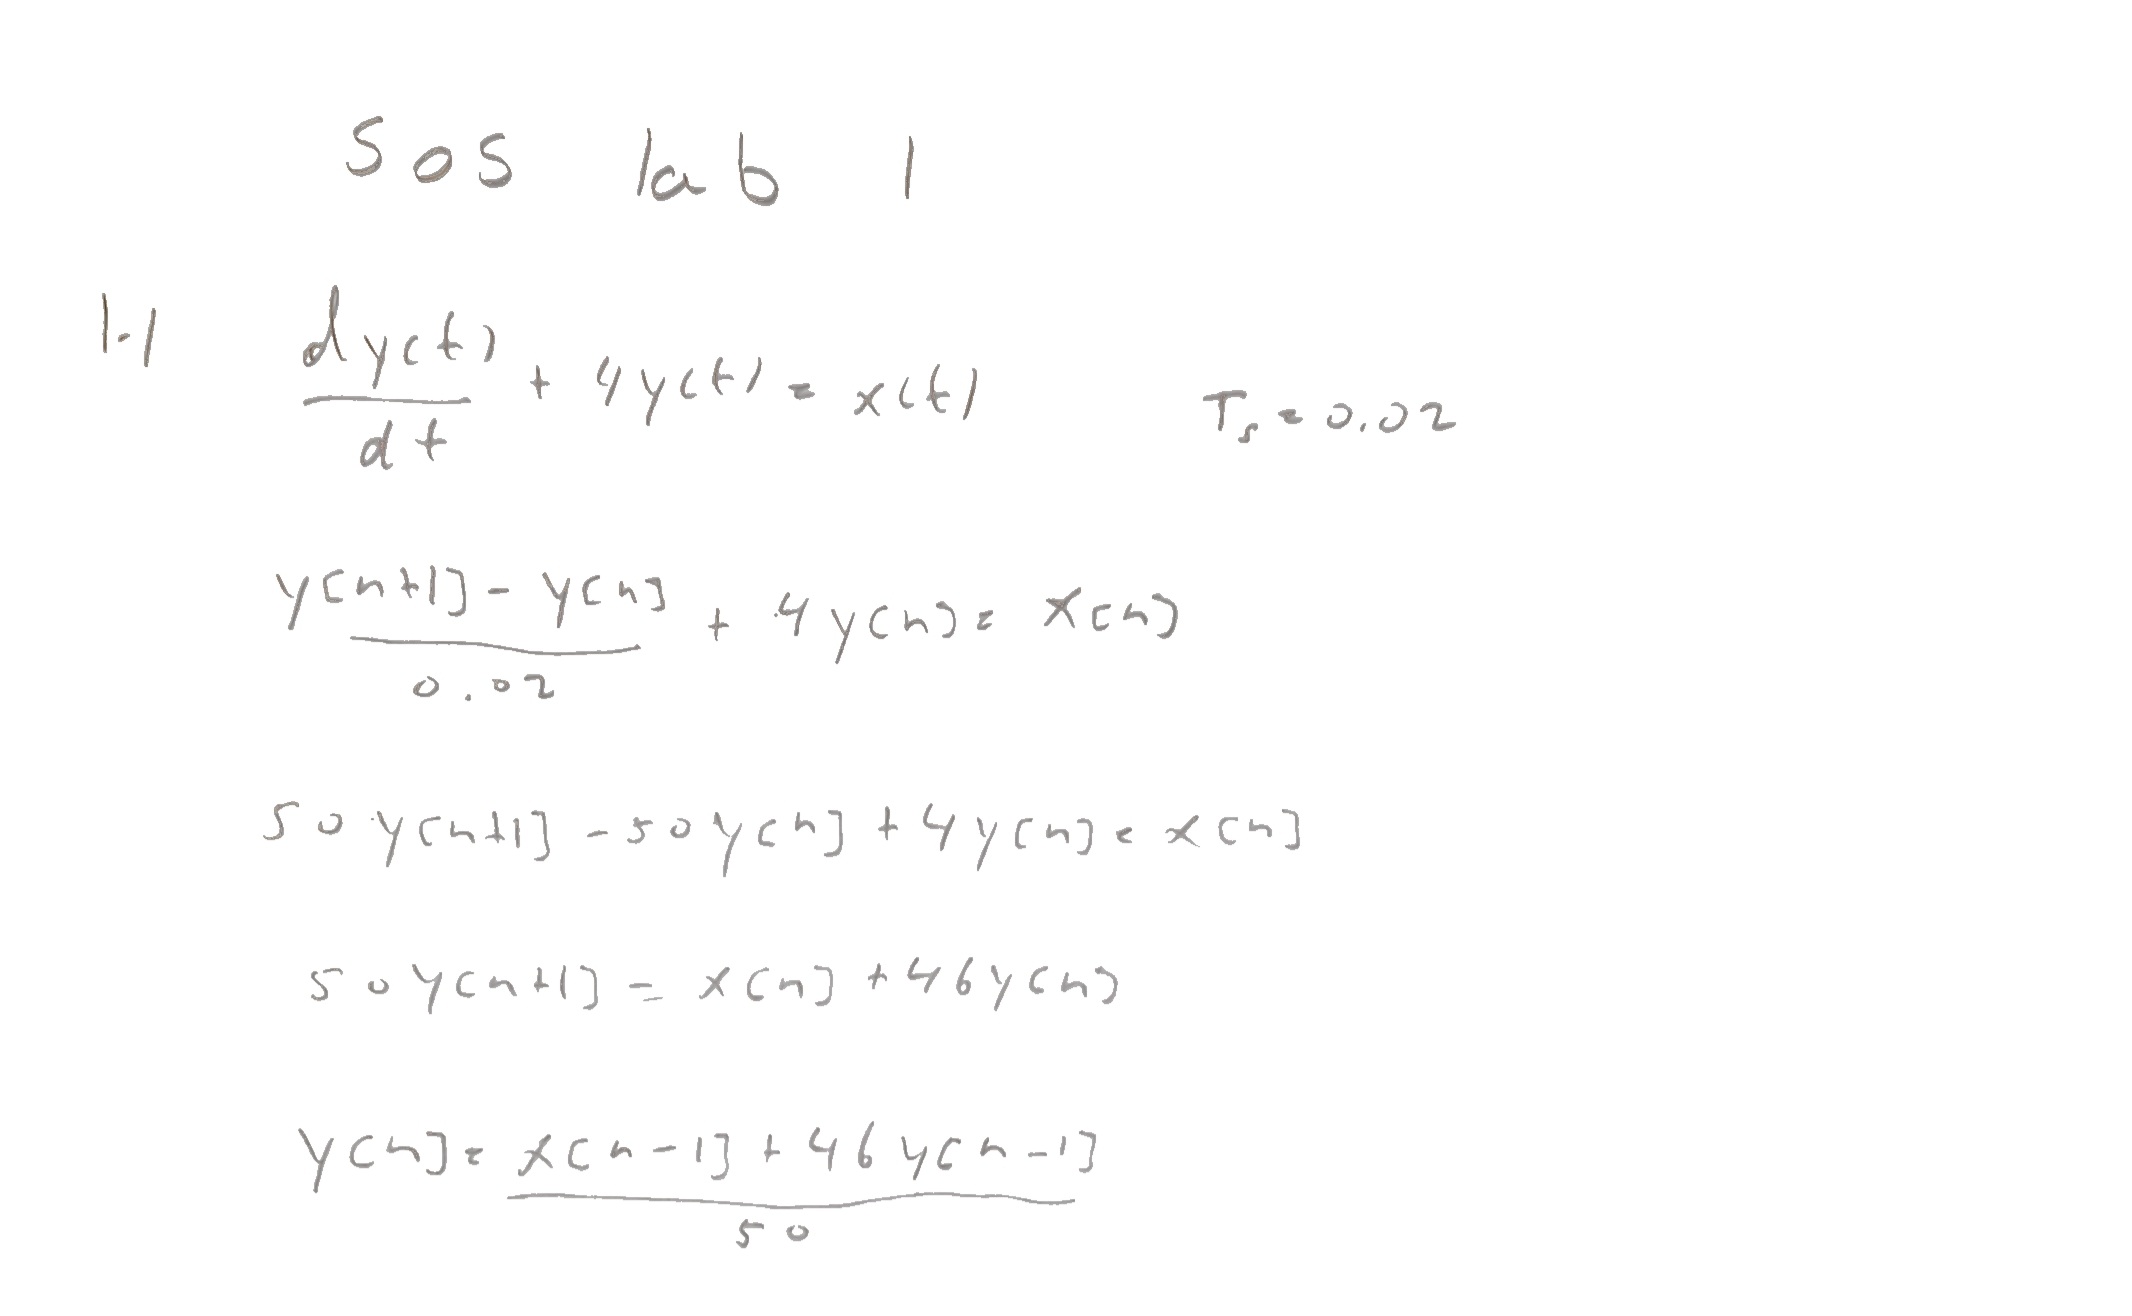 SOS lab 1
1-1 dy(t)/dt + 4y(t) = x(t) Ts = 0.02
y[n+1] - y[n]/0.02 + 4y[n] = x[n]
50y[n+1] - 50y[n] + 4y[n] = x[n]
50y[n+1] = x[n] + 46y[n]
y[n] = x[n-1] + 46y[n-1]/50